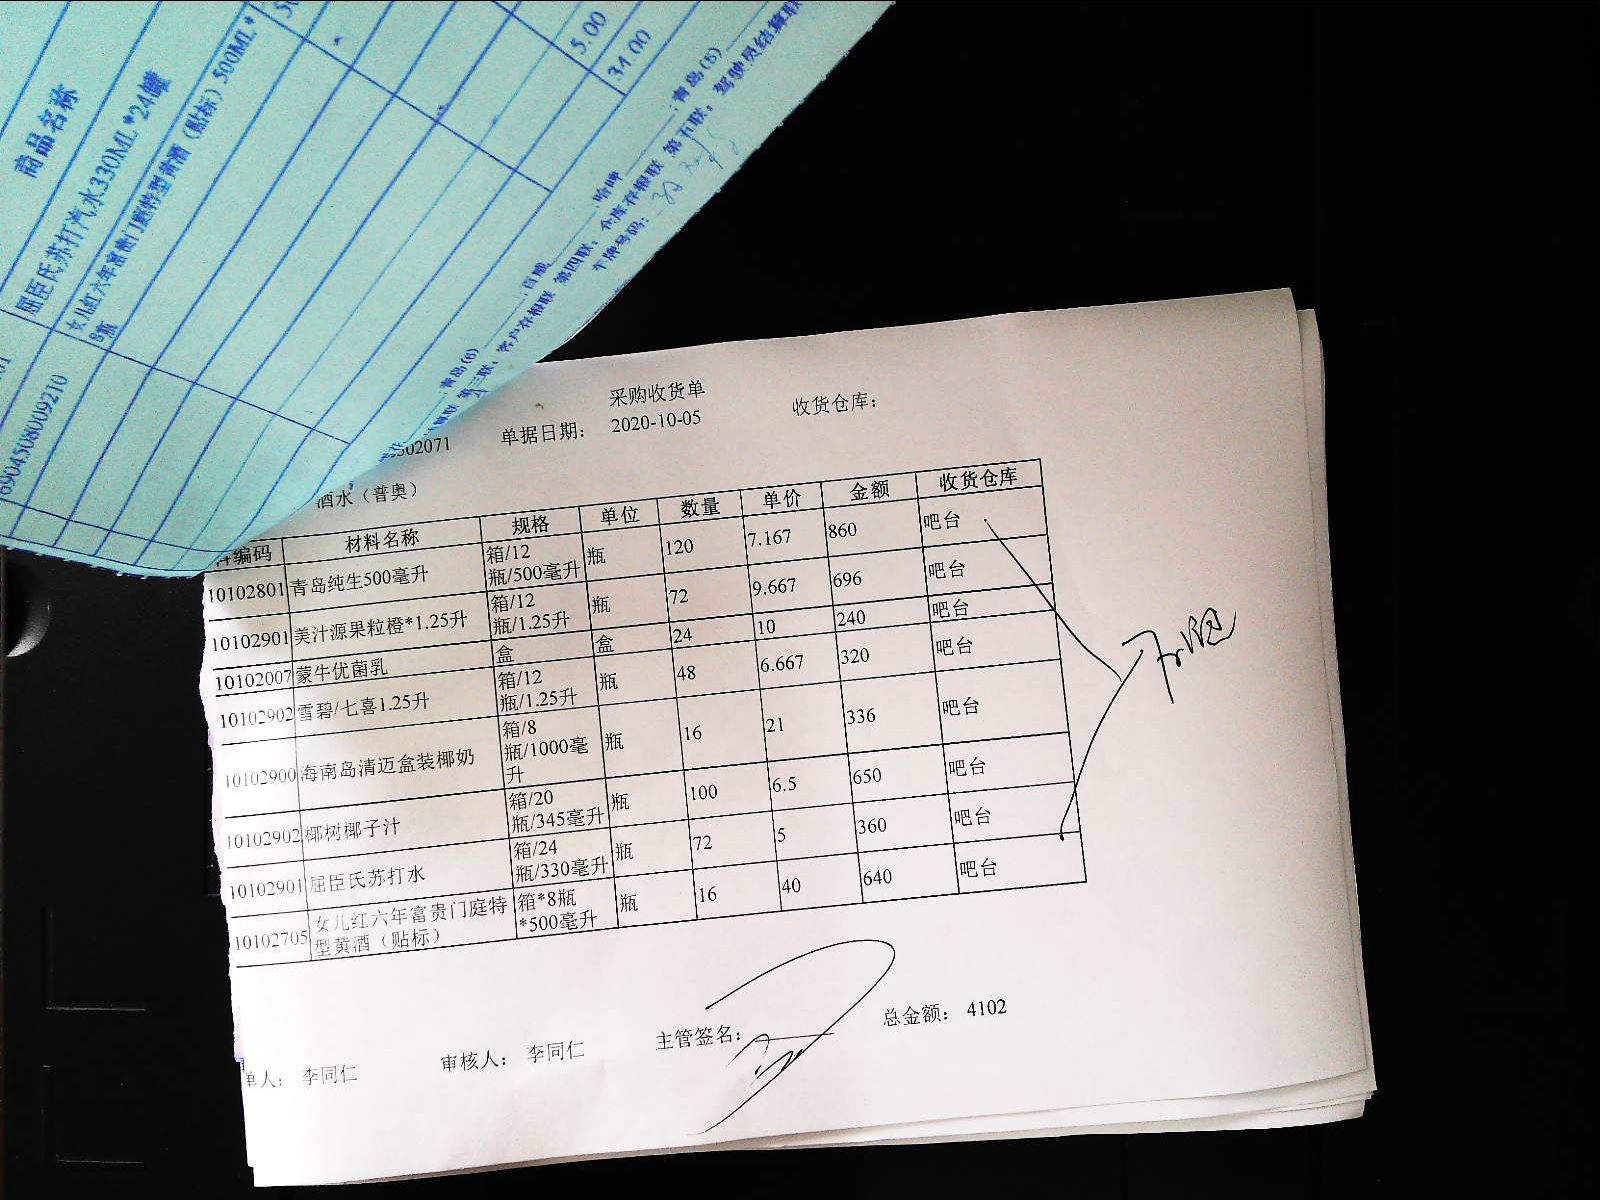 商品名称
屈臣氏苏打汽水330ML*24罐
女儿红六年富贵门庭特型黄酒（贴标）500ML*
8瓶
6904508009210
5.00
34.00
:青岛(6) :百威 :哈啤 :青岛(5)
第三联：客户存根联 第四联：仓库存根联 第五联：驾驶员结算联
车牌号码：
采购收货单
302071 单据日期： 2020-10-05 收货仓库：
酒水（普奥）
编码 材料名称 规格 单位 数量 单价 金额 收货仓库
10102801 青岛纯生500毫升 箱/12瓶/500毫升 瓶 120 7.167 860 吧台
10102901 美汁源果粒橙*1.25升 箱/12瓶/1.25升 瓶 72 9.667 696 吧台
10102007 蒙牛优菌乳 盒 盒 24 10 240 吧台
10102902 雪碧/七喜1.25升 箱/12瓶/1.25升 瓶 48 6.667 320 吧台
10102900 海南岛清迈盒装椰奶 箱/8瓶/1000毫升 瓶 16 21 336 吧台
10102902 椰树椰子汁 箱/20瓶/345毫升 瓶 100 6.5 650 吧台
10102901 屈臣氏苏打水 箱/24瓶/330毫升 瓶 72 5 360 吧台
10102705 女儿红六年富贵门庭特型黄酒（贴标） 箱*8瓶*500毫升 瓶 16 40 640 吧台
单人： 李同仁 审核人： 李同仁 主管签名： 总金额： 4102